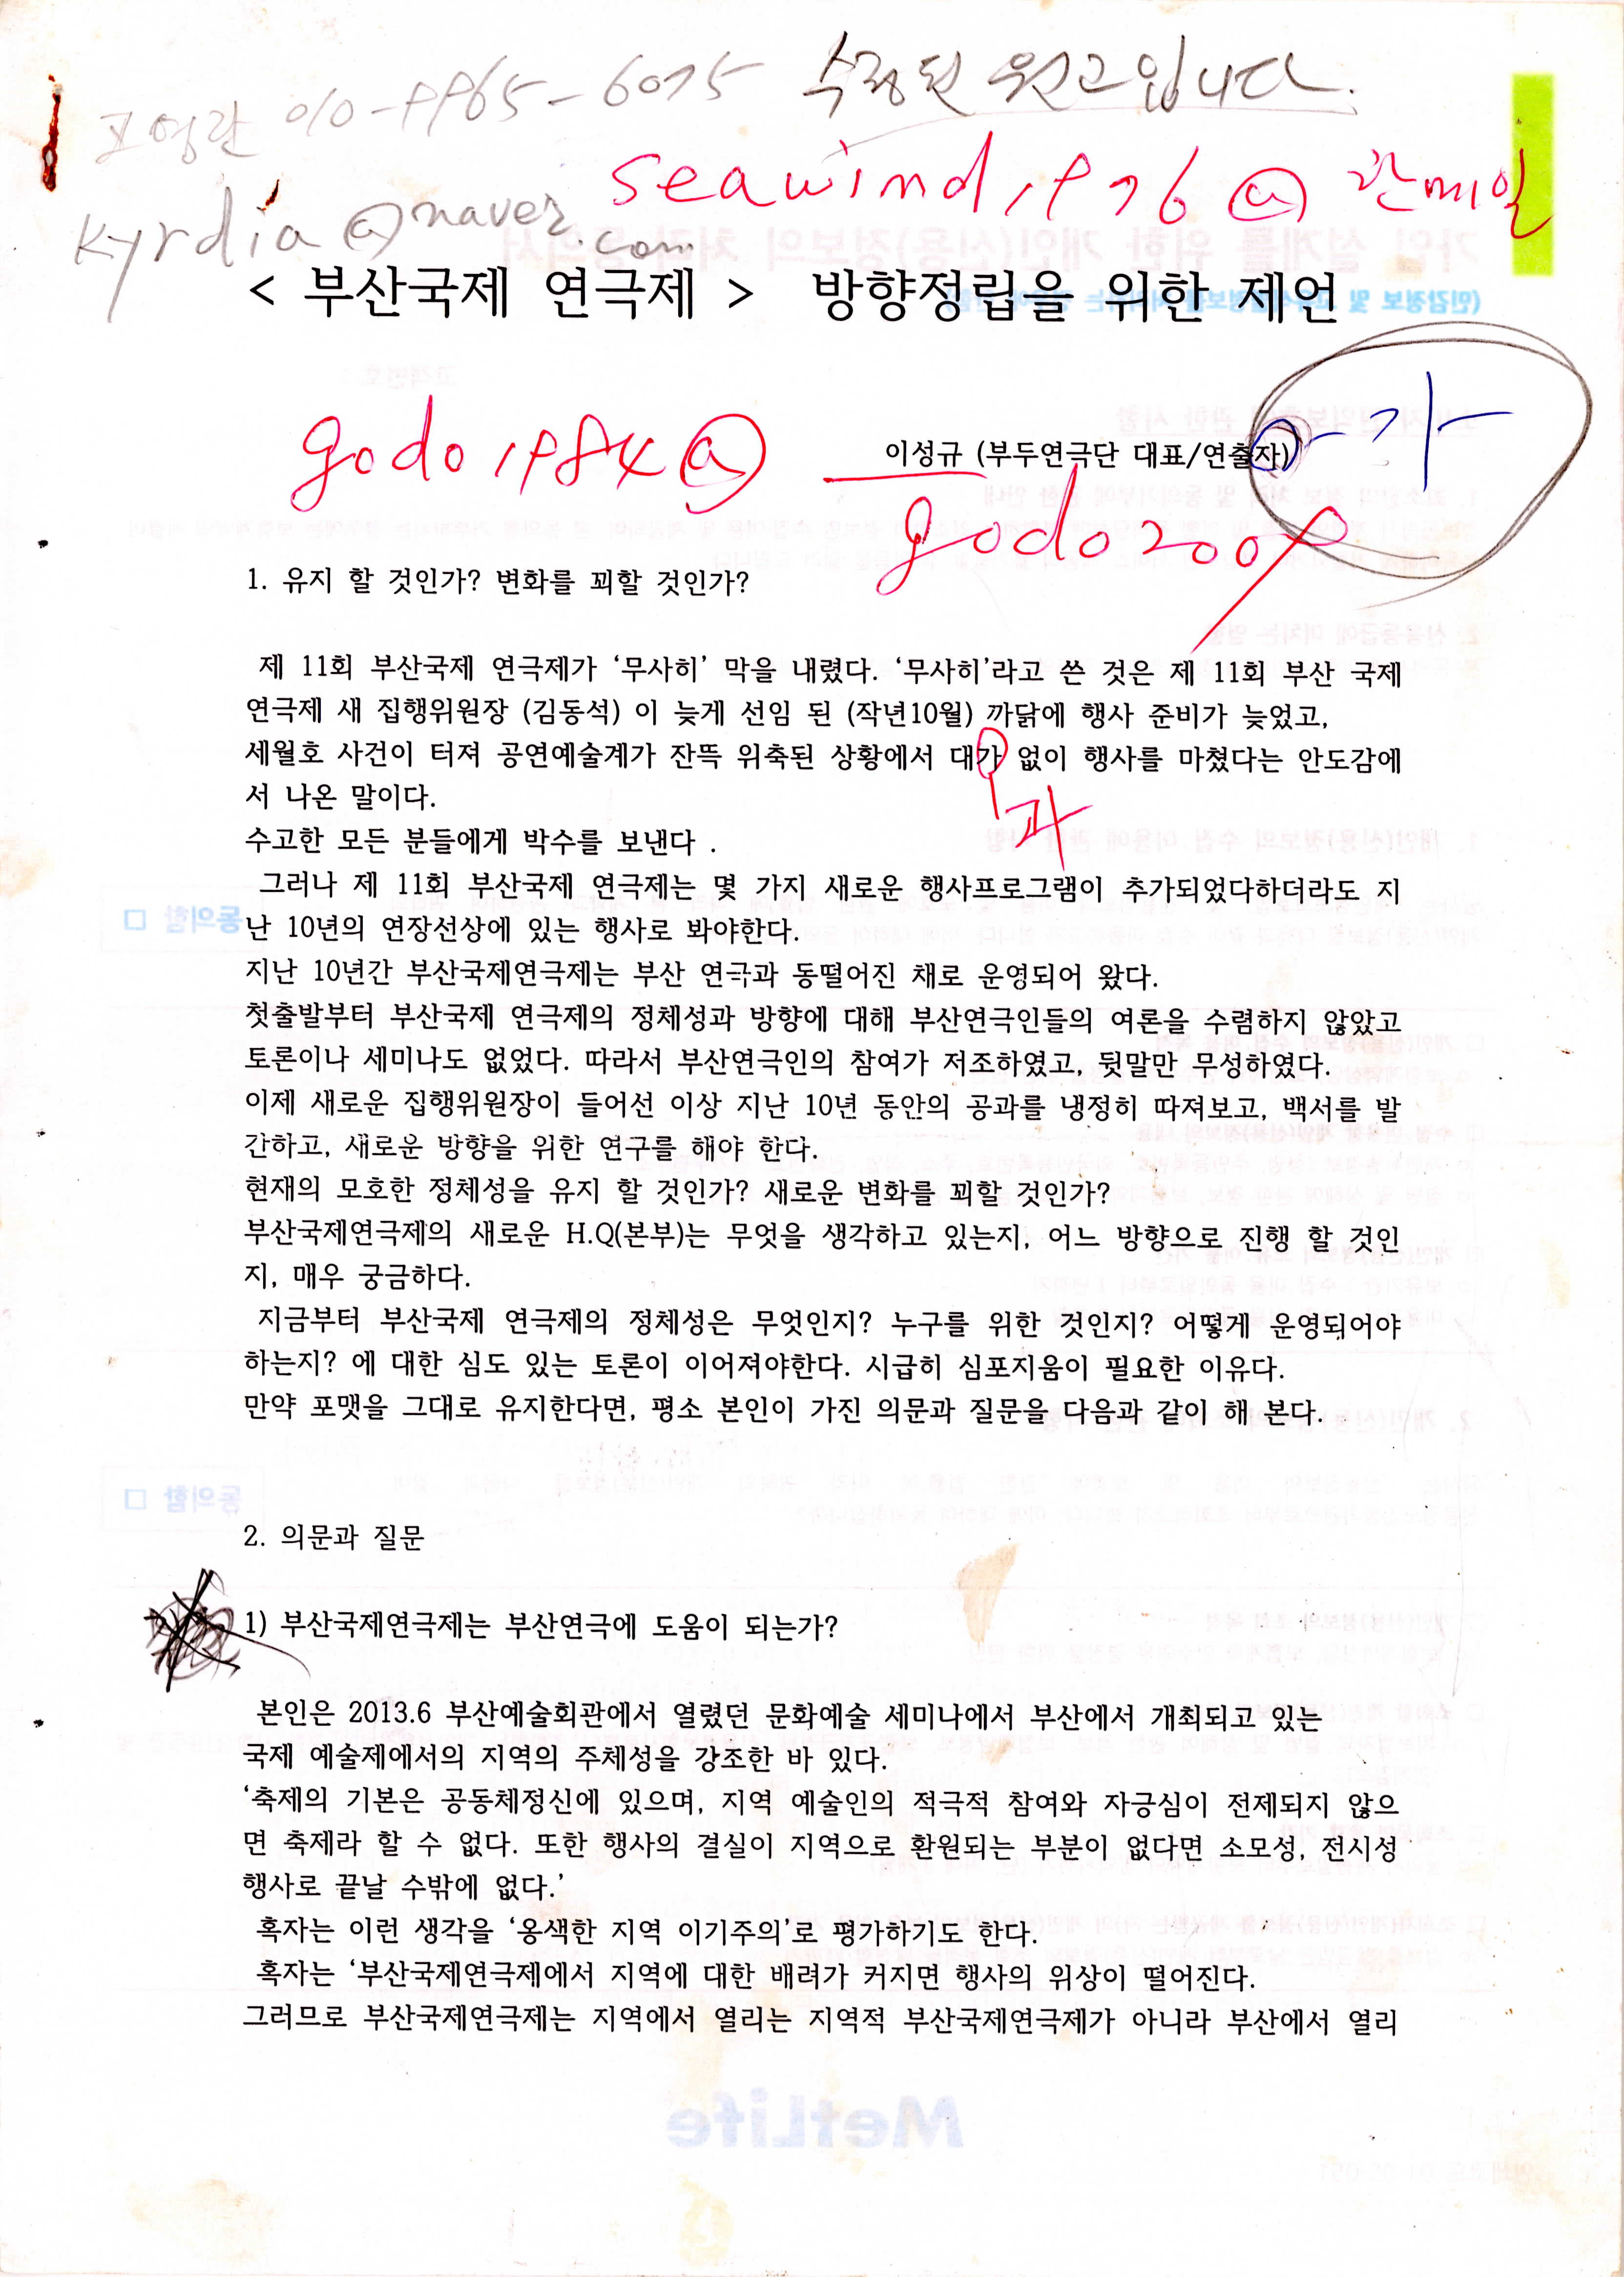 수정된 원고입니다.
고영란 010-9965-6075
seawind1976@한메일
kyrdia@naver.com
< 부산국제 연극제 > 방향정립을 위한 제언
godo1984@
이성규 (부두연극단 대표/연출자)
godo2009
1. 유지 할 것인가? 변화를 꾀할 것인가?
제 11회 부산국제 연극제가 ‘무사히’ 막을 내렸다. ‘무사히’라고 쓴 것은 제 11회 부산 국제
연극제 새 집행위원장 (김동석) 이 늦게 선임 된 (작년10월) 까닭에 행사 준비가 늦었고,
세월호 사건이 터져 공연예술계가 잔뜩 위축된 상황에서 대가 없이 행사를 마쳤다는 안도감에
서 나온 말이다.
과
수고한 모든 분들에게 박수를 보낸다 .
그러나 제 11회 부산국제 연극제는 몇 가지 새로운 행사프로그램이 추가되었다하더라도 지
난 10년의 연장선상에 있는 행사로 봐야한다.
지난 10년간 부산국제연극제는 부산 연극과 동떨어진 채로 운영되어 왔다.
첫출발부터 부산국제 연극제의 정체성과 방향에 대해 부산연극인들의 여론을 수렴하지 않았고
토론이나 세미나도 없었다. 따라서 부산연극인의 참여가 저조하였고, 뒷말만 무성하였다.
이제 새로운 집행위원장이 들어선 이상 지난 10년 동안의 공과를 냉정히 따져보고, 백서를 발
간하고, 새로운 방향을 위한 연구를 해야 한다.
현재의 모호한 정체성을 유지 할 것인가? 새로운 변화를 꾀할 것인가?
부산국제연극제의 새로운 H.Q(본부)는 무엇을 생각하고 있는지, 어느 방향으로 진행 할 것인
지, 매우 궁금하다.
지금부터 부산국제 연극제의 정체성은 무엇인지? 누구를 위한 것인지? 어떻게 운영되어야
하는지? 에 대한 심도 있는 토론이 이어져야한다. 시급히 심포지움이 필요한 이유다.
만약 포맷을 그대로 유지한다면, 평소 본인이 가진 의문과 질문을 다음과 같이 해 본다.
2. 의문과 질문
1) 부산국제연극제는 부산연극에 도움이 되는가?
본인은 2013.6 부산예술회관에서 열렸던 문화예술 세미나에서 부산에서 개최되고 있는
국제 예술제에서의 지역의 주체성을 강조한 바 있다.
‘축제의 기본은 공동체정신에 있으며, 지역 예술인의 적극적 참여와 자긍심이 전제되지 않으
면 축제라 할 수 없다. 또한 행사의 결실이 지역으로 환원되는 부분이 없다면 소모성, 전시성
행사로 끝날 수밖에 없다.’
혹자는 이런 생각을 ‘옹색한 지역 이기주의’로 평가하기도 한다.
혹자는 ‘부산국제연극제에서 지역에 대한 배려가 커지면 행사의 위상이 떨어진다.
그러므로 부산국제연극제는 지역에서 열리는 지역적 부산국제연극제가 아니라 부산에서 열리
MetLife